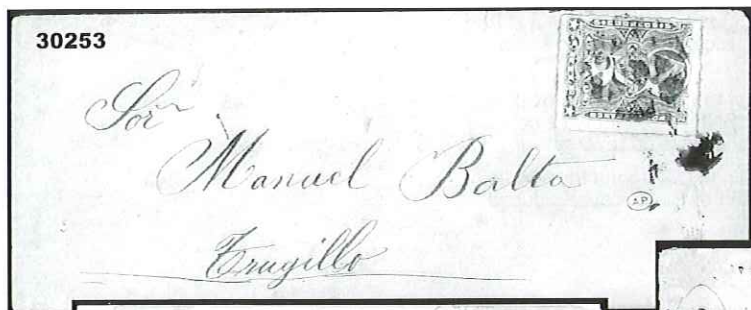 30253
Sor
Manuel Balta
Trugillo
AP